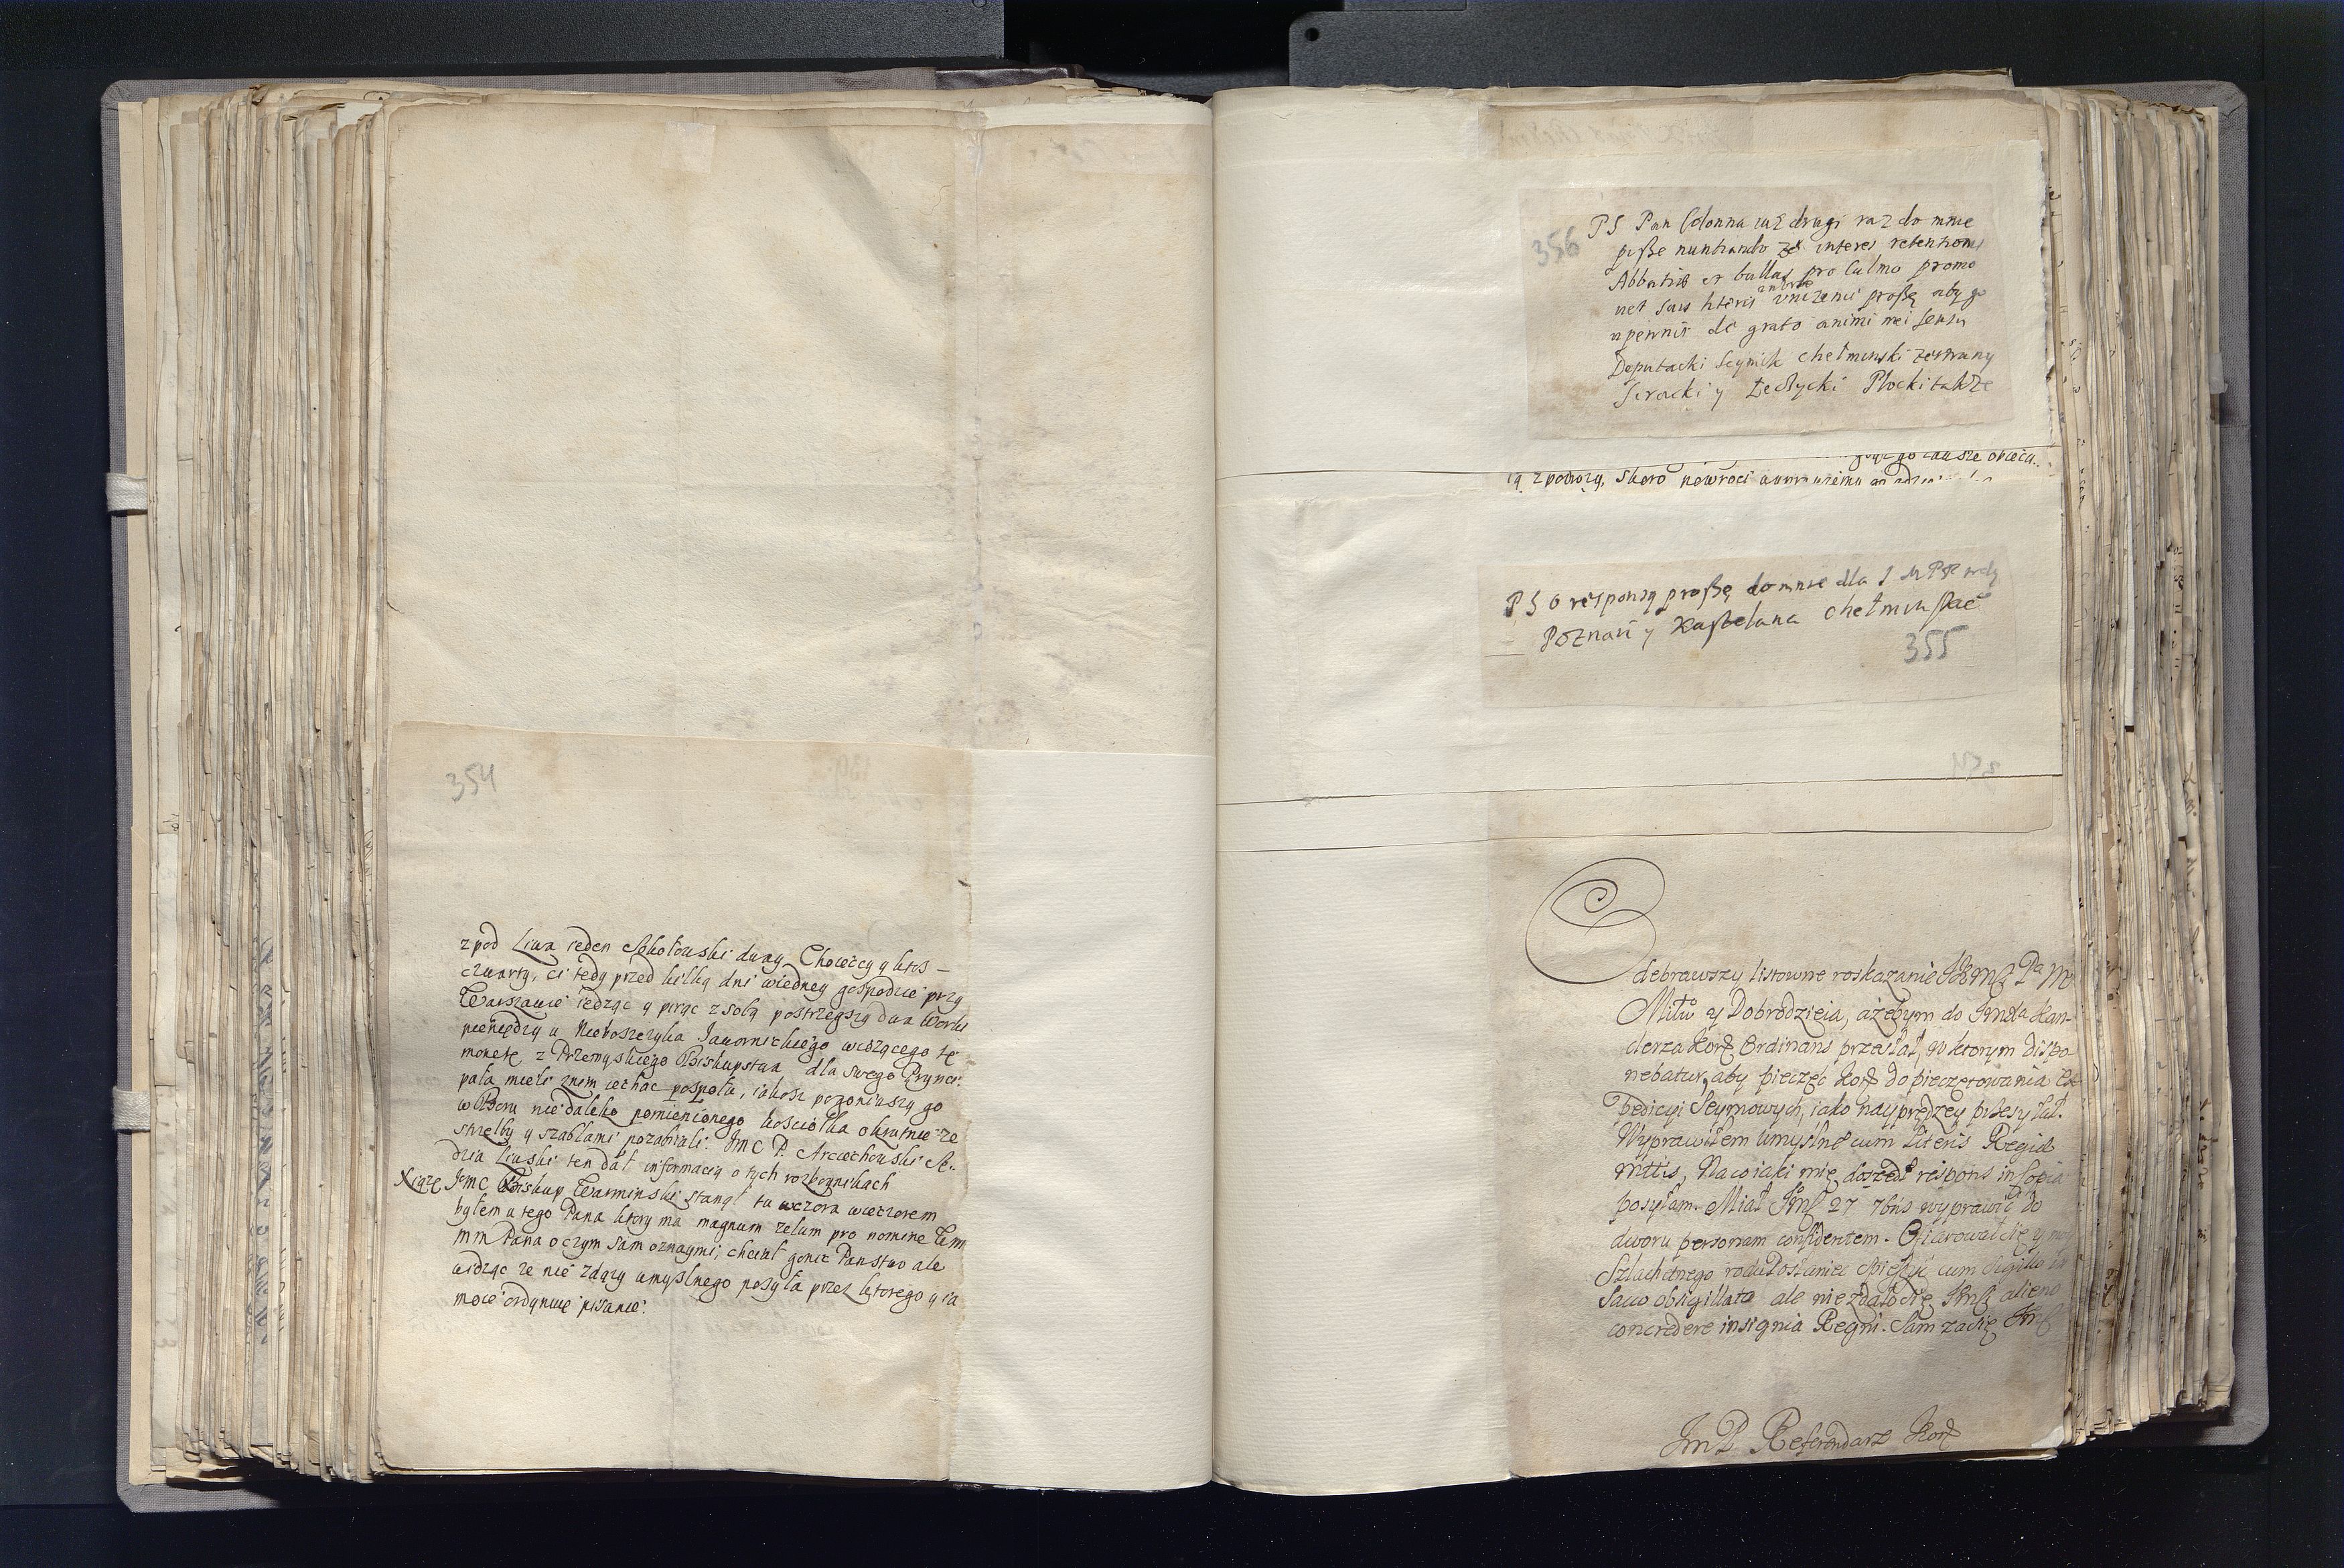 354
z pod Liwa ieden Sokołowski dway Choieccy y ktos
czwarty, ci tedy przed kilką dni wiedney gospodzie przy
Warszawie iedząc y piiąc z sobą postrzegszy dwa Worki
pieniędzy u Nieboszczyka Jawornickiego wiozącego tę
monetę z Przemyskiego Biskupstwa dla swego Prynci
pała mieli znim iechac pospołu, iakosz pogoniwszy go
w Boru niedaleko pomienionego kościołka okrutnie ze
strzelby y szablami pozabiiali. Jmc P. Arciechowski Sę
dzia Liwski ten dał informacią o tych rozboynikach
Xiąże Jmc Biskup Warminski stanął tu wczora wieczorem
byłem u tego Pana ktory ma magnum zelum pro nomine
mm Pana o czym sam oznaymi; chciał gonic Panstwo ale
widząc ze nie zdązy umyslnego posyła przez ktorego y ia
moie ordynuię pisanie.
356
PS Pan Colonna iuż drugi raz do mnie
pisze nuntiando że interes retentionis
Abbatiae et bullas pro Culmo promo
net suis literis uniżenie proszę aby go
upewnić de grato animi mei sensu
Deputacki Seymik chełminski zerwany
Siracki y Łęczycki Płocki także
ią z podrozy, skoro powroci
PS O responsą proszę do mnie dla J M P
Poznań y Kasztelana chełminskie
355
Odebrawszy listowne roskazanie Pa M
Miłº y Dobrodzieia, ażebym do Kan-
clerza Kor Ordinans przesłał, w ktorym dispo-
nebatur, aby pieczęć Kor do pieczętowania Ex
pedicyi Seymowych, iako nayprędzey przesyłał.
Wyprawiłem umyslnº cum Literis Regiae
Mttis, Na co iaki mię doszedł respons in Copia
posyłam. Miał Jmć 27 7bris wyprawić do
dworu personam confidentem. Ofiarował się y moy
Szlachetnego rodu Posłaniec spieszyć cum sigillo in
Sacco obsigillato ale nie zdało się Jmći alieno
concredere insignia Regni. Sam zaś się Jmć
JmP Referendarz Kor